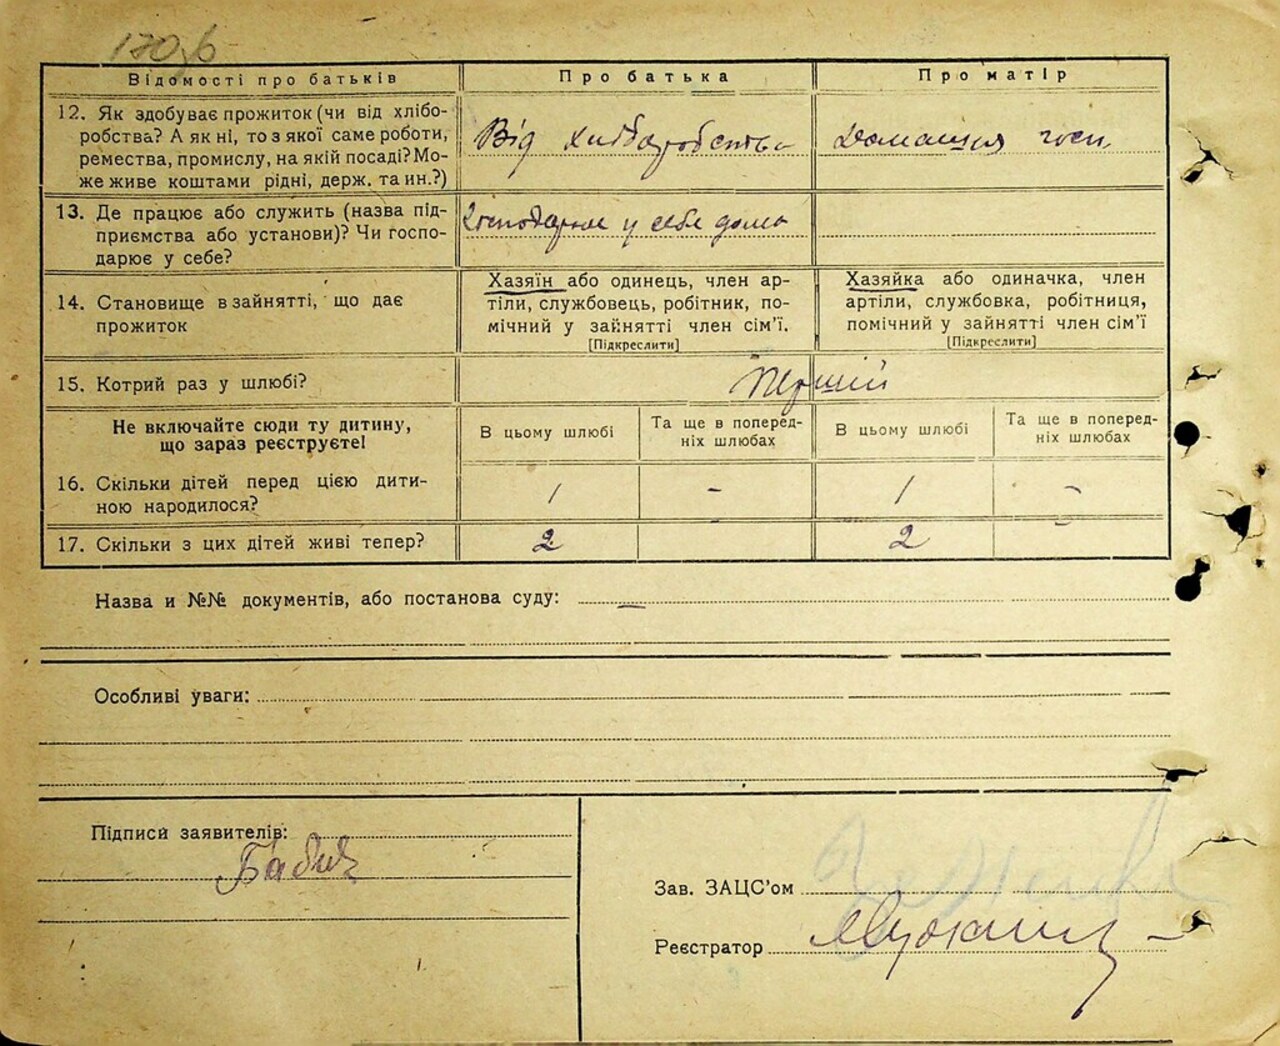 170зв
Відомості про батьків
Про батька
Про матір
12. Як здобуває прожиток (чи від хлібо-
робства? А як ні, то з якої саме роботи,
ремества, промислу, на якій посаді? Мо-
же живе коштами рідні, держ. та ин.?)
Від хліборобства
Домашня госп
13. Де працює або служить (назва під-
приємства або установи)? Чи госпо-
дарює у себе?
Господарює у себе дома
14. Становище в зайнятті, що дає
прожиток
Хазяїн або одинець, член ар-
тіли, службовець, робітник, по-
мічний у зайнятті член сім’ї.
[Підкреслити]
Хазяйка або одиначка, член
артіли, службовка, робітниця,
помічний у зайнятті член сім’ї
[Підкреслити]
15. Котрий раз у шлюбі?
Перший
Не включайте сюди ту дитину,
що зараз реєструєте!
В цьому шлюбі
Та ще в поперед-
ніх шлюбах
В цьому шлюбі
Та ще в поперед-
ніх шлюбах
16. Скільки дітей перед цією дити-
ною народилося?
1 - 1 -
17. Скільки з цих дітей живі тепер?
2 2
Назва и №№ документів, або постанова суду: —
Особливі уваги:
Підписи заявителів:
Бабич
Зав. ЗАЦС’ом
Реєстратор